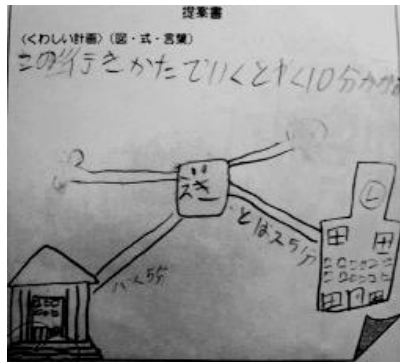 提案書
〈くわしい計画〉(図・式・言葉)
この行きかたでいくとやく10分かかる
えき
バス5分